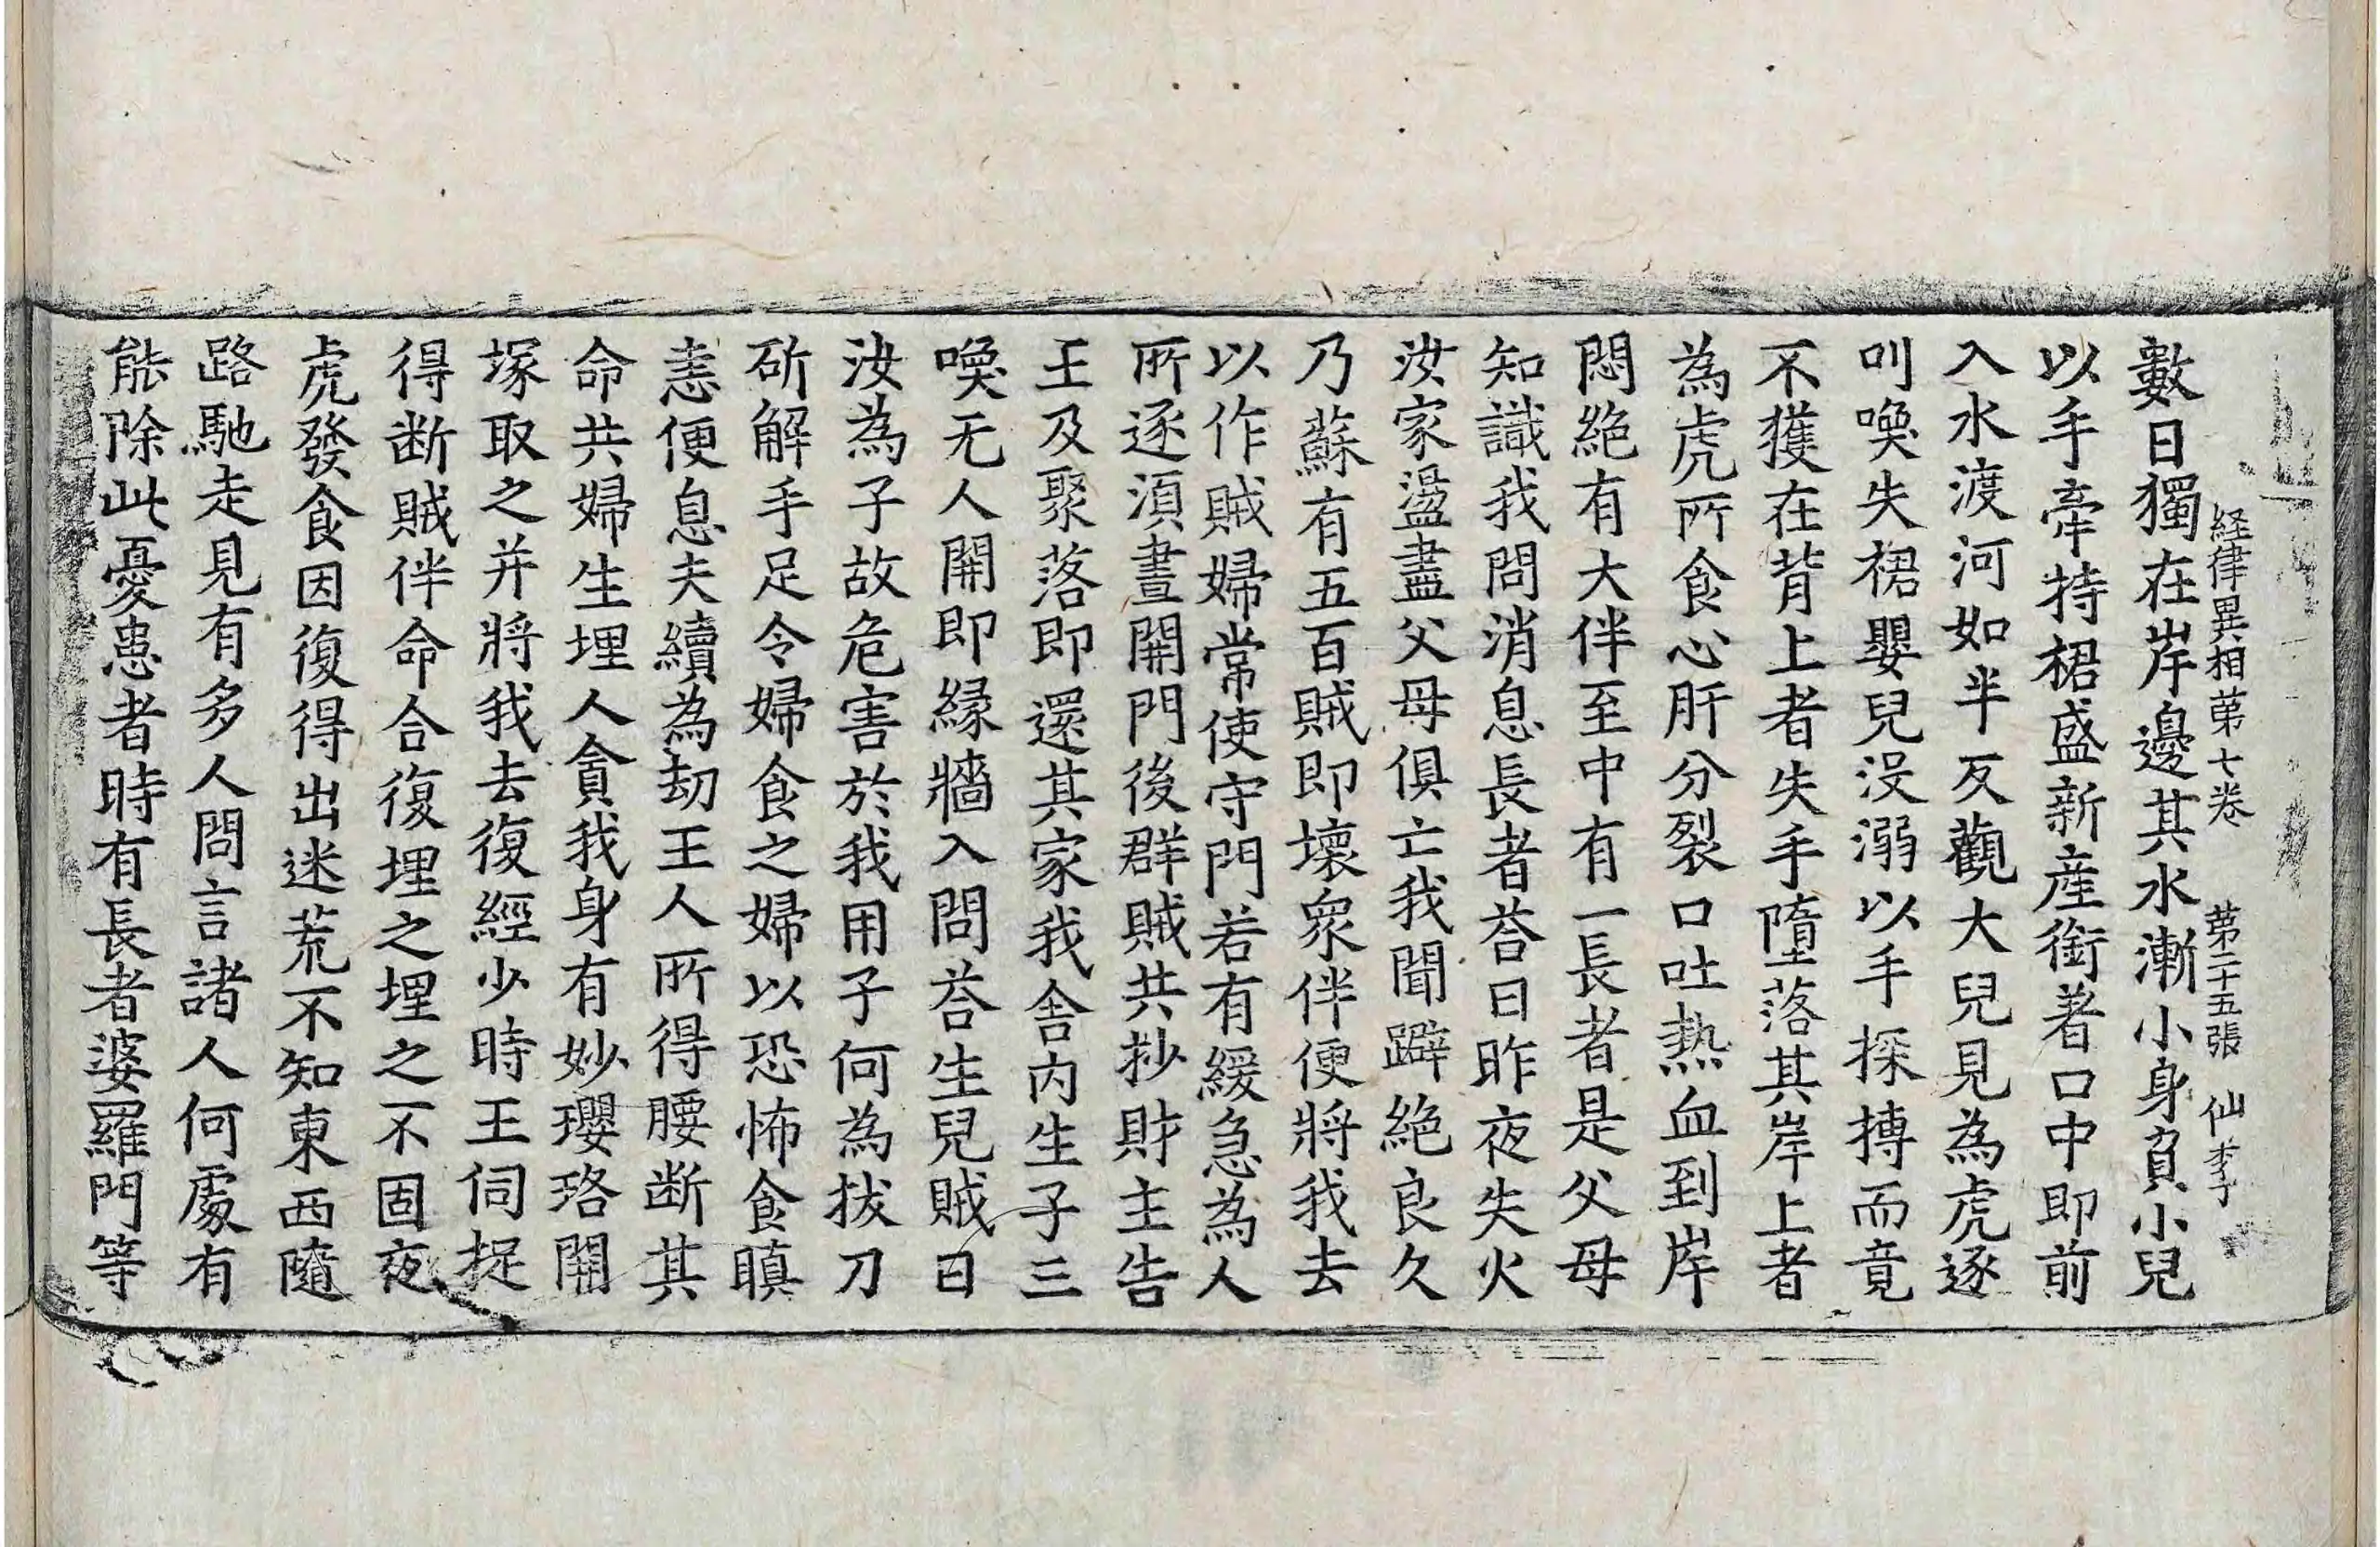 経律異相苐七卷 苐二十五張 仙李
數日獨在岸邊其水漸小身負小兒
以手牽持裙盛新產銜著口中即前
入水渡河如半反觀大兒見為虎逐
叫喚失裙嬰兒没溺以手探摶而竟
不獲在背上者失手墮落其岸上者
為虎所食心肝分裂口吐熱血到岸
悶絶有大伴至中有一長者是父母
知識我問消息長者荅曰昨夜失火
汝家盪盡父母俱亡我聞躃絶良久
乃蘇有五百賊即壞衆伴便將我去
以作賊婦常使守門若有緩急為人
所逐湏晝開門後群賊共抄財主告
王及聚落即還其家我舍內生子三
喚无人開即緣牆入問荅生兒賊曰
汝為子故危害於我用子何為拔刀
斫解手足令婦食之婦以恐怖食瞋
恚便息夫續為劫王人所得腰断其
命共婦生埋人貪我身有妙瓔珞開
塚取之并將我去復經少時王伺捉
得断賊伴命合復埋之埋之不固夜
虎發食因復得出迷荒不知東西隨
路馳走見有多人問言諸人何處有
能除此憂患者時有長者婆羅門等